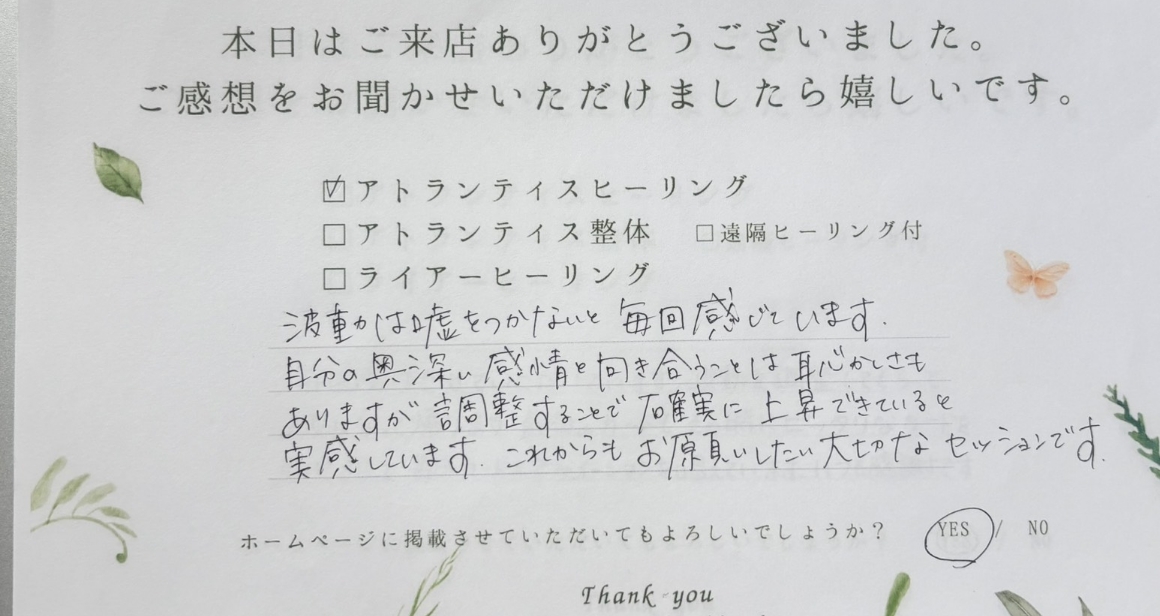 本日はご来店ありがとうございました。
ご感想をお聞かせいただけましたら嬉しいです。
☑アトランティスヒーリング
□アトランティス整体 □遠隔ヒーリング付
□ライアーヒーリング
波動は嘘をつかないと毎回感じています.
自分の奥深い感情と向き合うことは恥かしさも
ありますが調整することで確実に上昇できていると
実感しています. これからもお願いしたい大切なセッションです.
ホームページに掲載させていただいてもよろしいでしょうか？ YES / NO
Thank you